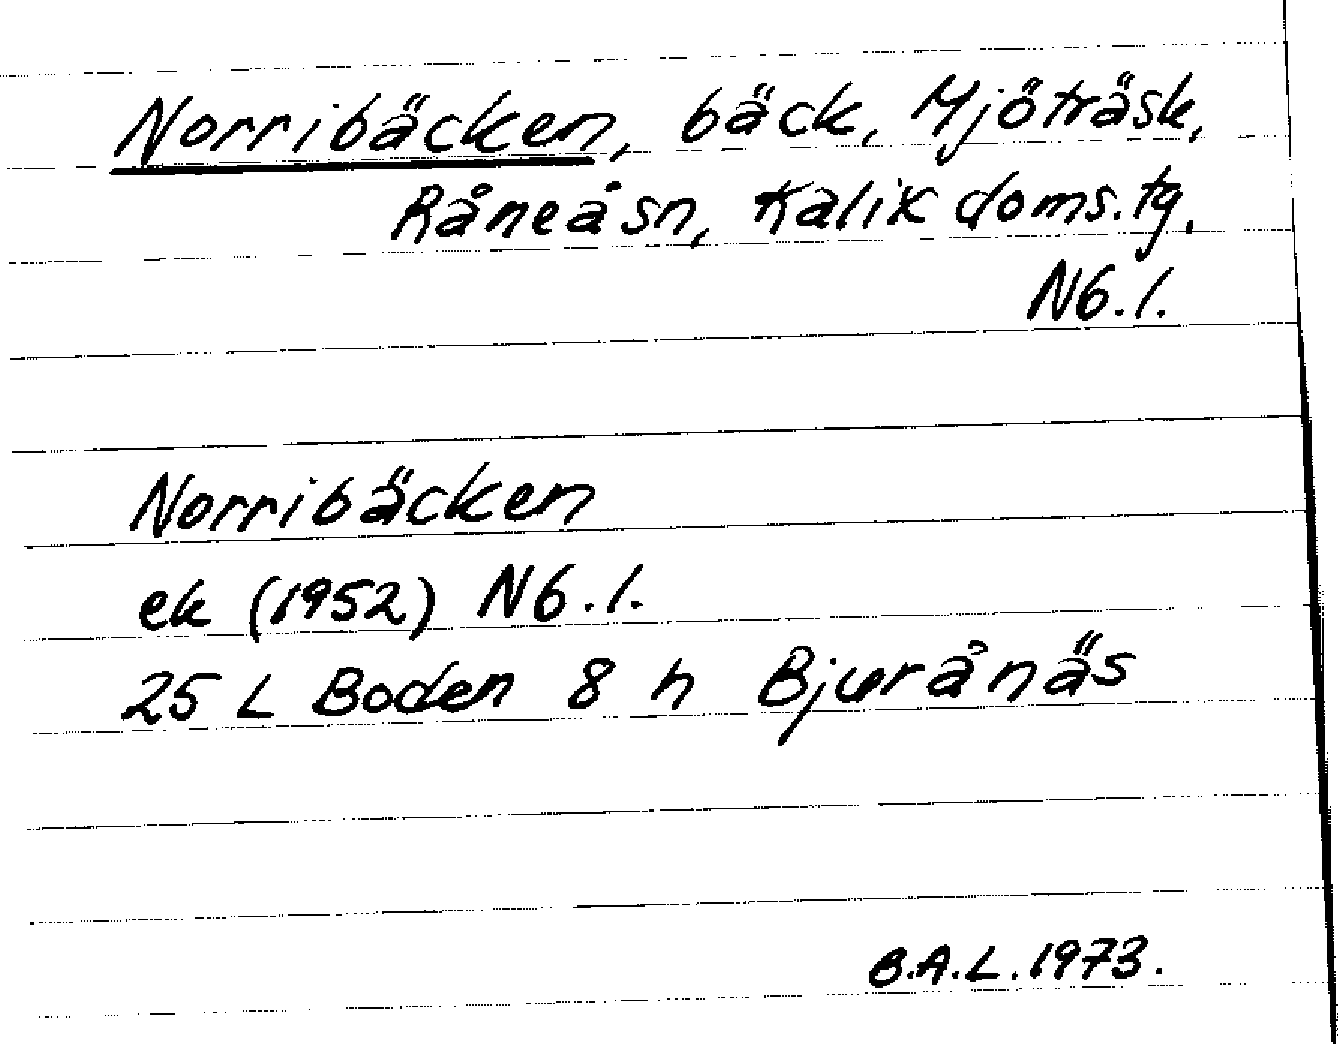 Norribäcken, bäck, Mjöträsk,
Råneå sn, Kalix doms.tg,
Nb.l.
Norribäcken
ek (1952) Nb.l.
25 L Boden 8 h Bjurånäs
B.A.L. 1973.